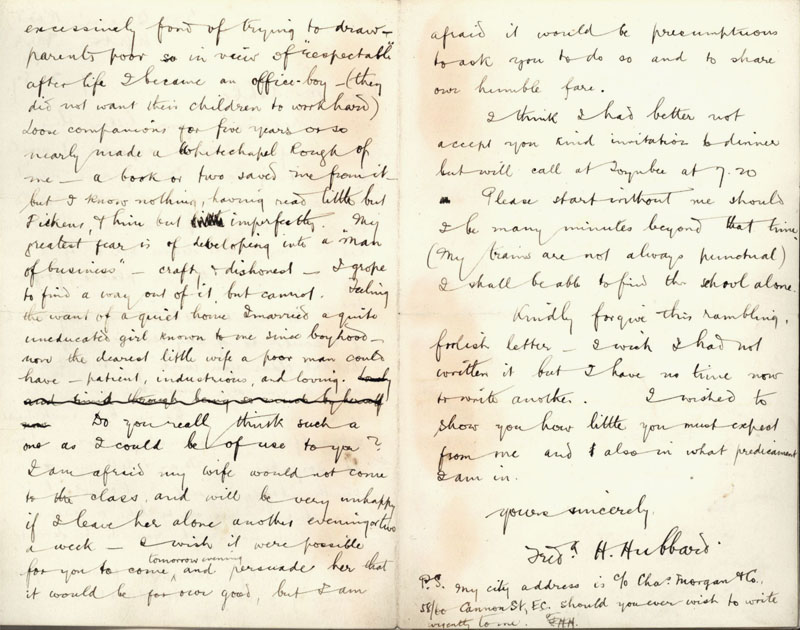 excessively fond of trying to draw –
parents poor so in view of "respectable"
after life I became an office-boy – (they
did not want their children to work hard)
Loose companions for five years or so
nearly made a Whitechapel Rough of
me – a book or two saved me from it
but I know nothing, having read little but
Dickens, & him but imperfectly. My
greatest fear is of developing into a "man
of business" – crafty & dishonest – I grope
to find a way out of it, but cannot. Feeling
the want of a quiet home I married a quite
uneducated girl known to me since boyhood –
now the dearest little wife a poor man could
have – patient, industrious, and loving.
Do you really think such a
one as I could be of use to you?
I am afraid my wife would not come
to the class, and will be very unhappy
if I leave her alone another evening or two
a week – I wish it were possible
for you to come tomorrow evening and persuade her that
it would be for our good, but I am
afraid it would be presumptuous
to ask you to do so and to share
our humble fare.
I think I had better not
accept you kind invitation to dinner
but will call at Toynbee at 7.20
Please start without me should
I be many minutes beyond that time.
(My trains are not always punctual)
I shall be able to find the school alone.
Kindly forgive this rambling,
foolish letter – I wish I had not
written it but I have no time now
to write another. I wished to
show you how little you must expect
from me and also in what predicament
I am in.
yours sincerely
Fredk. H. Hubbard.
P.S. My city address is c/o Chas. Morgan & Co.,
Cannon St, EC. should you ever wish to write
urgently to me. FHH.